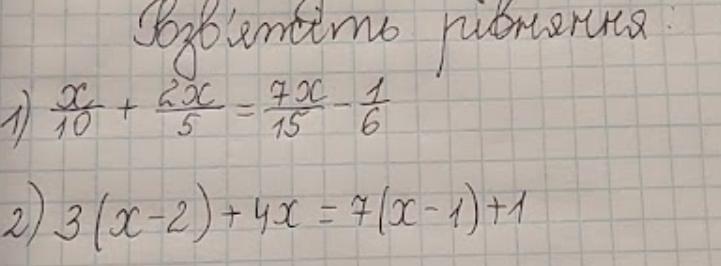 Розв'яжіть рівняння:
1) x/10 + 2x/5 = 7x/15 - 1/6
2) 3(x-2)+4x=7(x-1)+1